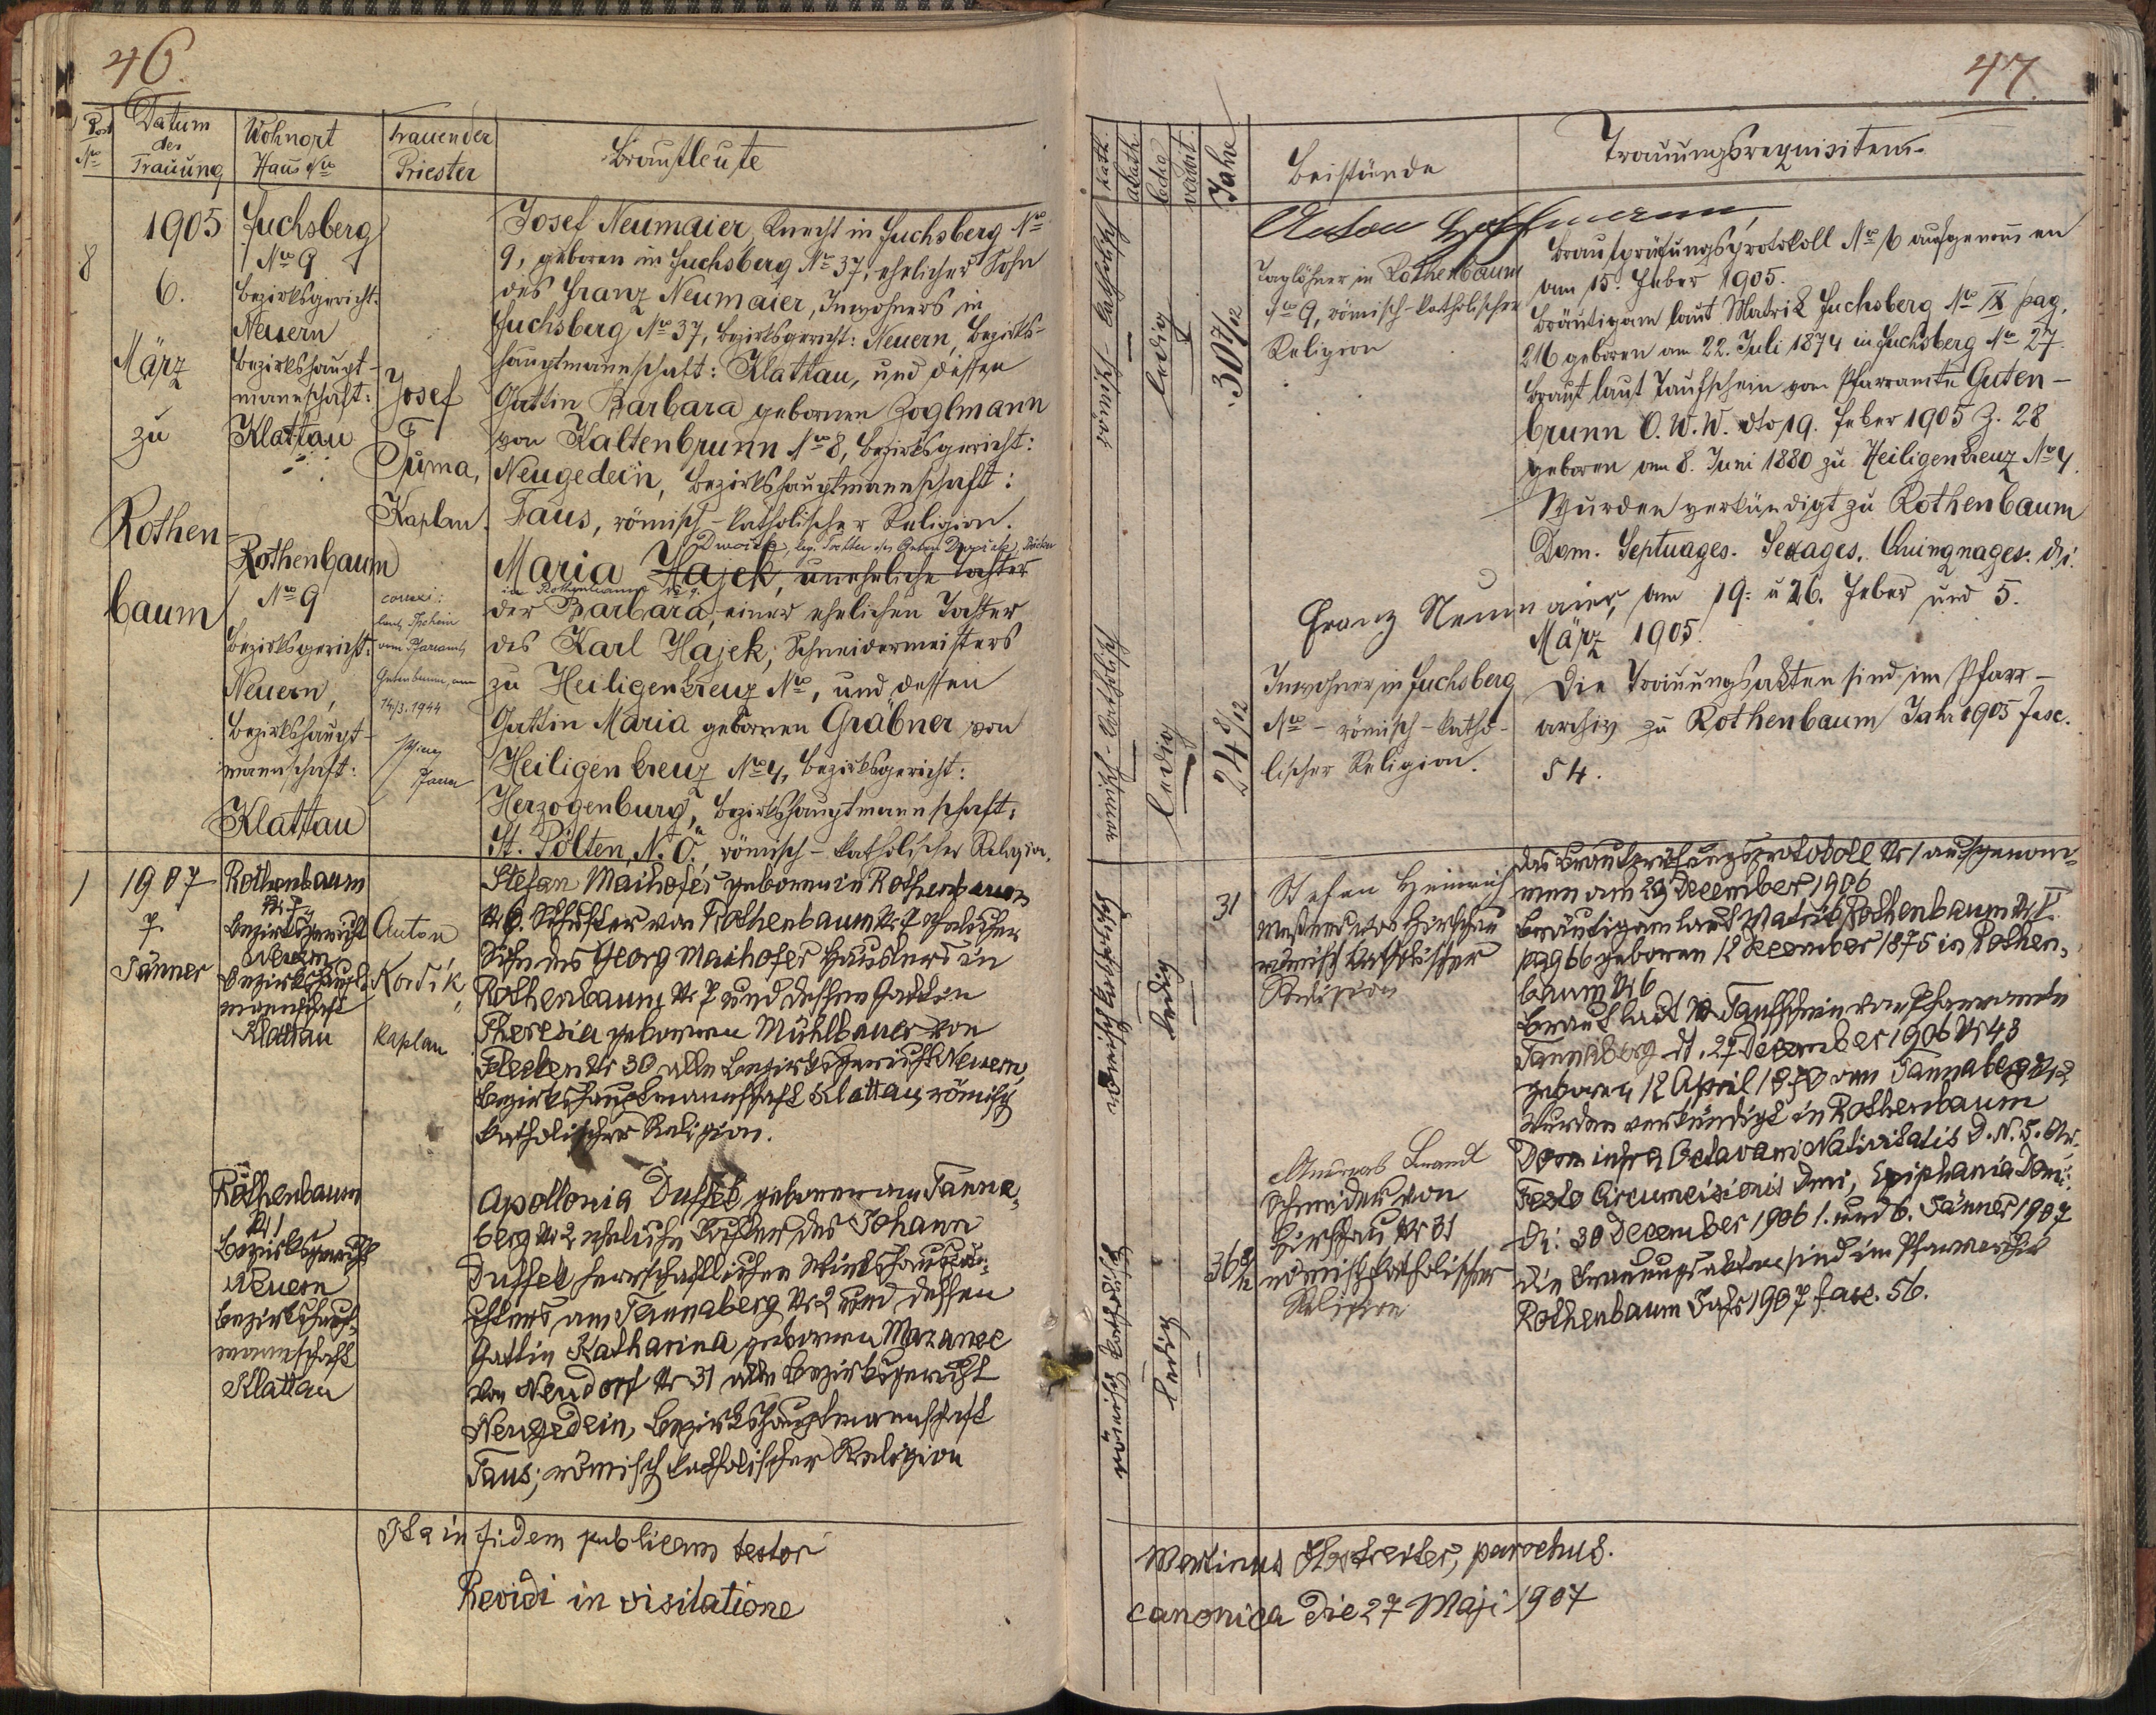 46.
Post
Nro
Datum
der
Trauung
Wohnort
Haus Nro
Trauender
Priester
Brautleute
8
1905
6.
März
zu
Rothen-
baum
Fuchsberg
Nro 9
Bezirksgericht:
Neuern
Bezirkshaupt-
mannschaft:
Klattau
Josef
Tuma,
Kaplan.
Josef Neumaier, Knecht in Fuchsberg Nro
9, geboren in Fuchsberg Nro 37, ehelicher Sohn
des Franz Neumaier, Inwohners in
Fuchsberg Nro 37, Bezirksgericht: Neuern, Bezirks-
hauptmannschaft: Klattau, und dessen
Gattin Barbara geborenen Zoglmann
von Kaltenbrunn Nro 8, Bezirksgericht:
Neugedein, Bezirkshauptmannschaft:
Taus, römisch-katholischer Religion.
Rothenbaum
Nro 9
Bezirksgericht:
Neuern,
Bezirkshaupt-
mannschaft:
Klattau
laut
vom Pfarramt
Gutenbrunn, am
14/3. 1944
leg. Tochter des Anton
Maria Hajek, uneheliche Tochter
in Rothenbaum No 9.
der Barbara, einer ehelichen Tochter
des Karl Hajek, Schneidermeisters
zu Heiligenkreuz Nro, und dessen
Gattin Maria geborenen Gräbner von
Heiligenkreuz Nro 4, Bezirksgericht:
Herzogenburg, Bezirkshauptmannschaft:
St. Pölten, N.Ö., römisch-katholischer Religion.
1
1907
7.
Jänner
Rothenbaum
Nr 7
Bezirksgericht
Neuern
Bezirkshaupt-
mannschaft
Klattau
Anton
Kordik,
Kaplan
Stefan Maihofer geboren in Rothenbaum
Nr 6. Schuster von Rothenbaum Nr 7 ehelicher
Sohn des Georg Maihofer Häuslers in
Rothenbaum Nr 7 und dessen Gattin
Theresia geborenen Mühlbauer von
Flecken Nr 30 alle Bezirksgericht Neuern,
Bezirkshauptmannschaft Klattau, römisch
katholischer Religion.
Rothenbaum
Nr 1
Bezirksgericht
Neuern
Bezirkshaupt-
mannschaft
Klattau
Apollonia Duffek geboren am Tanna-
berg Nr 2 eheliche Tochter des Johann
Duffek herrschaftlichen Wirtshauspä-
chters am Tannaberg Nr 2 und dessen
Gattin Katharina geborenen Mazanec
von Neudorf Nr 31 alle Bezirksgericht
Neugedein, Bezirkshauptmannschaft
Taus; römisch katholischer Religion
Ita in fidem publicam testor
Revidi in visitatione
47.
kath.
akath.
ledig
verwit.
Jahre
Beistände
Trauungsrequisiten.
römisch-katholisch
ledig
30 7/12
Anton Hoffmann,
Taglöhner in Rothenbaum
Nro 9, römisch-katholischer
Religion
Brautprüfungsprotokoll Nro 6 aufgenommen
am 15. Feber 1905.
Bräutigam laut Matrik Fuchsberg Nro IX pag.
216 geboren am 22. Juli 1874 in Fuchsberg Nro 27.
Braut laut Taufschein vom Pfarramte Guten-
brunn O.W.W. dto 19. Feber 1905 Z. 28
geboren am 8. Juni 1880 zu Heiligenkreuz Nro 4.
Wurden verkündigt zu Rothenbaum
Dom. Septuages. Sexages. Quinquages. di.
am 19. u 26. Feber und 5.
März 1905.
römisch-katholisch
ledig
24 8/12
Franz Neumaier,
Inwohner in Fuchsberg
Nro - römisch-katho-
lischer Religion.
Die Trauungsakten sind im Pfarr-
archiv zu Rothenbaum Jahr 1905 Fasc.
54.
römisch katholisch
ledig
31
Stefan Heinrich
von Hirschau
römisch katholischer
Religion
Das Brautprüfungsprotokoll Nr 1 aufgenom-
men am 29 December 1906
Bräutigam laut Matrik Rothenbaum Nr I.
pag 66 geboren 12 December 1875 in Rothen-
baum Nr 6
Braut laut Taufschein vom Pfarramte
Tannaberg dt. 27 Dezember 1906 Nr 43
geboren 12 April 1870 am Tannaberg Nr 2
Wurden verkündigt in Rothenbaum
Dom infra Octavam Nativitatis D. N. J. Chr.
Festo Circumcisionis Dmi, Epiphania Dom:
di: 30 December 1906 1. und 6. Jänner 1907
Die Trauungsakten sind im Pfarrarchiv
Rothenbaum Jahr 1907 fasc. 56.
römisch katholisch
ledig
36 8/12
Andreas Brandl
Schneider von
Hirschau Nr 31
römisch katholischer
Religion
Martinus Hostreiter, parochus.
canonica die 27 Maji 1907